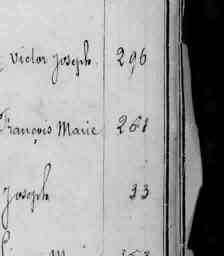 Victor Joseph. 296
François Marie 261
Joseph 33